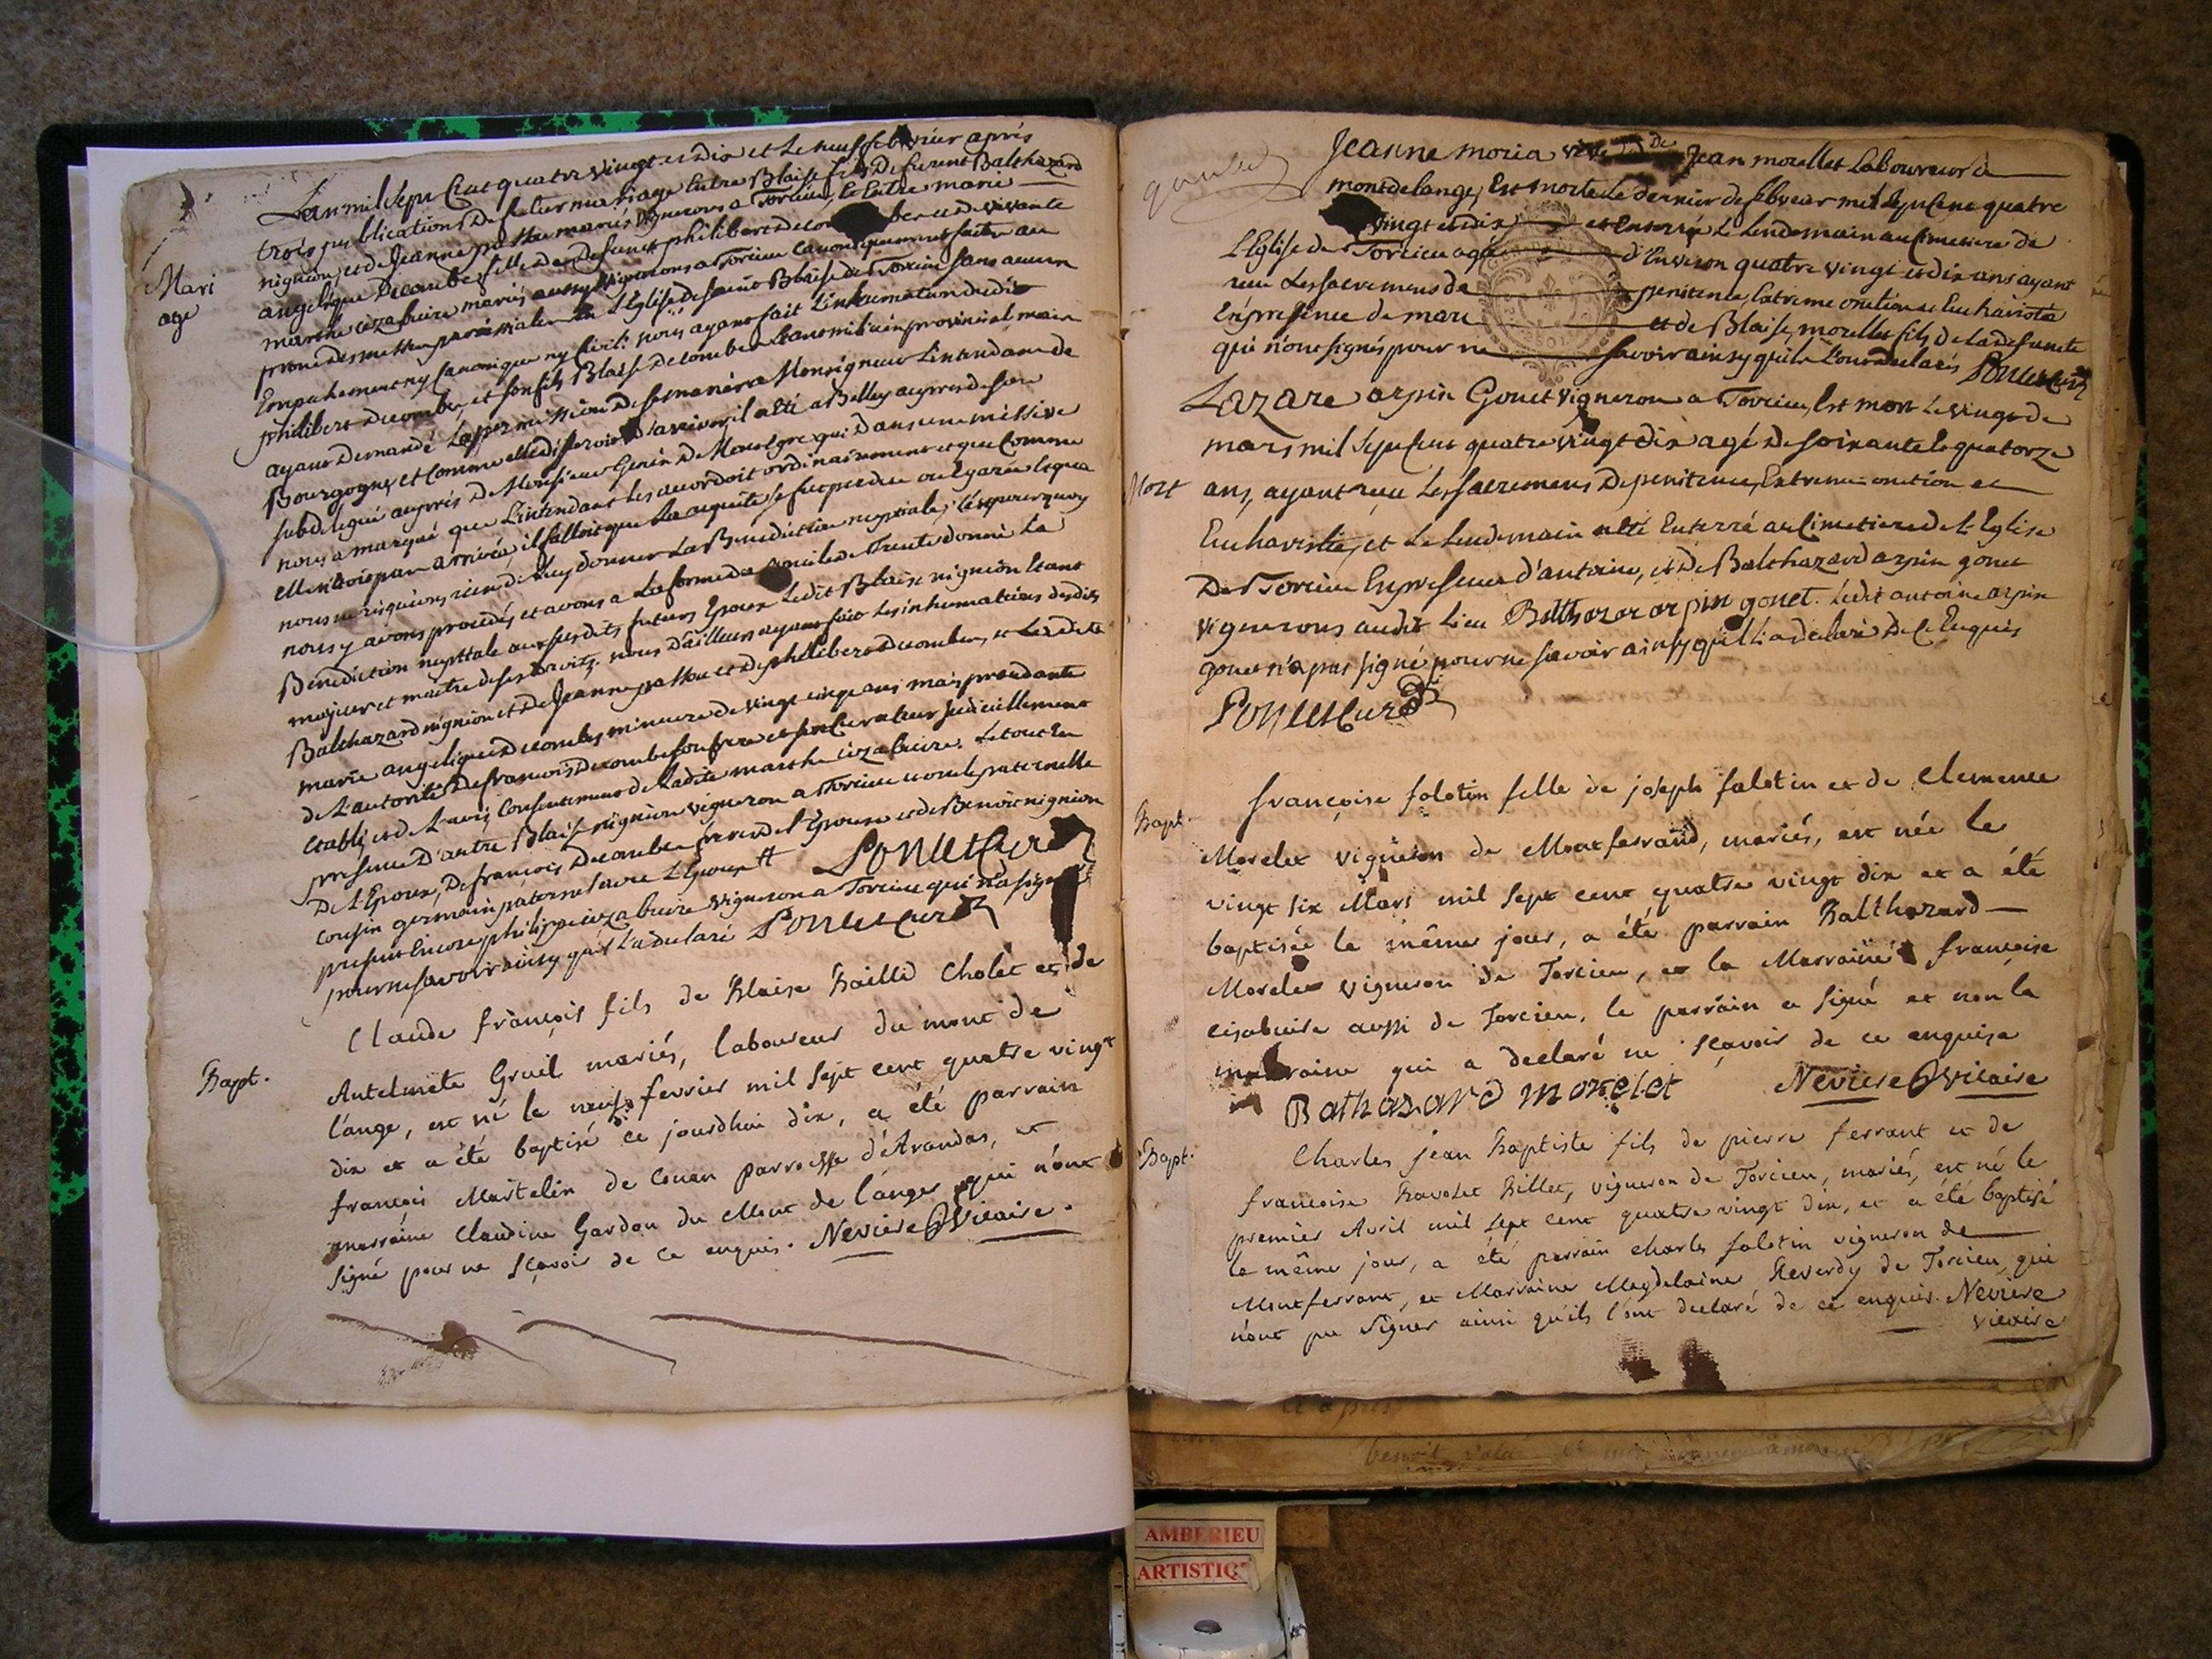 Mari
age
L'an mil sept Cent quatre vingt et dix et Le neuf febvrier aprés
trois publications De futur mariage Entre Blaise fils De furent Balthazard
nignion et de Jeanne mariés vignerons a Torcieu, Et Entre marie
angelique Decombe fille De Defunct philibert De vivante
marthe cizabuire mariés aussy vignerons a Torcieu canoniquement faites au
prone des messes paroissiales L'Eglise De saint Blaise De Torcieu sans aucun
Empechement ny Canonique ny Civil: nous ayant fait L'inhumation dudit
philibert Decombe, et son fils Blaise Decombe Etant milicien provincial mais
ayant Demandé La permission De se marier a Monseigneur L'intendant de
Bourgogne, et Comme elle d'arriver il a été a Belley aupres de son
subdelegué auprés De Monsieur Genin De Montegre qui Dans une missive
nous a marqué que L'intendant les accordoit ordinairement et que Comme
elle n'étoit pas arrivée, il falloit que La requête se fut perdue ou Egarée et que
nous ne risquions rien de Luy donner La Benediction nuptiale; c'est pourquoy
nous y avons procedés, et avons a La forme du Concile de Trente donné La
Benediction nupttale aux susdits futurs Epoux Ledit Blaise nignion Etant
majeur et maitre de ses droits, nous D'ailleurs ayant fait Les inhumations desdits
Balthazard nignion et De Jeanne et De philibert Decombe, et Ladite
marie angelique Decombe, mineure de vingt cinq ans mais procedante
de L'autorité De francois Decombe son frere et son Curateur judiciellement
Etabli, et de L'avis, Consentement de Ladite marthe cizabuire. Le tout En
presence D'autre Blaise nignion vigneron a Torcieu oncle paternelle
De L'Epoux, De francois Decombe frere de L'Epouse et de Benoit nignion
cousin germain paternel avec L'Epoux Poncet Curé
present Encore philippe cizabuire vigneron a Torcieu qui n'a signé
pour ne savoir ainsy qu'il L'a declaré Poncet Curé
Bapt.
Claude françois fils de Blaise Baille Cholet et de
Antelmete Gruil mariés, laboureur du mont de
l'ange, est né le neuf fevrier mil sept cent quatre vingt
dix et a été baptisé ce jourdhui dix, a été parrain
francois Martelin de Couan parroisse d'Arandas, et
marraine Claudine Gardon du Mont de l'ange, qui n'ont
signé pour ne sçavoir de ce enquis. Neviere Vicaire.
Jeanne moria veve De Jean morellet Laboureur a
montdelange, Est morte Le dernier de febvrier mil sept Cent quatre
vingt et dix, et enterrée Le Lendemain au Cimetiere de
L'Eglise de Torcieu agée d'Environ quatre vingt et dix ans ayant
reçu Les sacremens de penitence, Extreme onction et Eucharistie
En presence de marc et de Blaise, morellet fils De La defuncte
qui n'ont signés pour ne savoir ainsy qu'ils L'ont declarés Poncet Curé
Mort
Lazare arpin Gonet vigneron a Torcieu, Est mort Le vingt de
mars mil sept Cent quatre vingt dix agé De soixante et quatorze
ans, ayant reçu Les sacremens De penitence, Extreme onction et
Eucharistie, et Le Lendemain a été Enterré au Cimetiere de L'Eglise
De Torcieu En presence d'antoine, et De Balthazard arpin gonet
vignerons audit Lieu Balthazar arpin gonet. Ledit antoine arpin
gonet n'a pas signé pour ne savoir ainsy qu'il L'a declaré De Ce Enquis
Poncet Curé
Bapt.
françoise falotin fille de joseph falotin et de Clemence
Morelet vigneron de Montferrand, mariés, est née le
vingt six Mars mil sept cent quatre vingt dix et a été
baptisée le même jour, a été parrain Balthazard
Morelet vigneron de Torcieu, et la Marraine françoise
cisabuire aussi de Torcieu, le parrain a signé et non la
marraine qui a declaré ne sçavoir de ce enquise
Bathazard morelet Neviere Vicaire
Bapt.
Charles jean Baptiste fils de pierre ferrant et de
francoise Ravolet Billet, vigneron de Torcieu, mariés, est né le
premier Avril mil sept cent quatre vingt dix, et a été baptisé
le même jour, a été parrain Charles falotin vigneron de
Montferrant, et Marraine Magdelaine Reverdy de Torcieu, qui
n'ont pu signer ainsi qu'ils l'ont declaré de ce enquis. Neviere
vicaire
AMBERIEU
ARTISTIQ